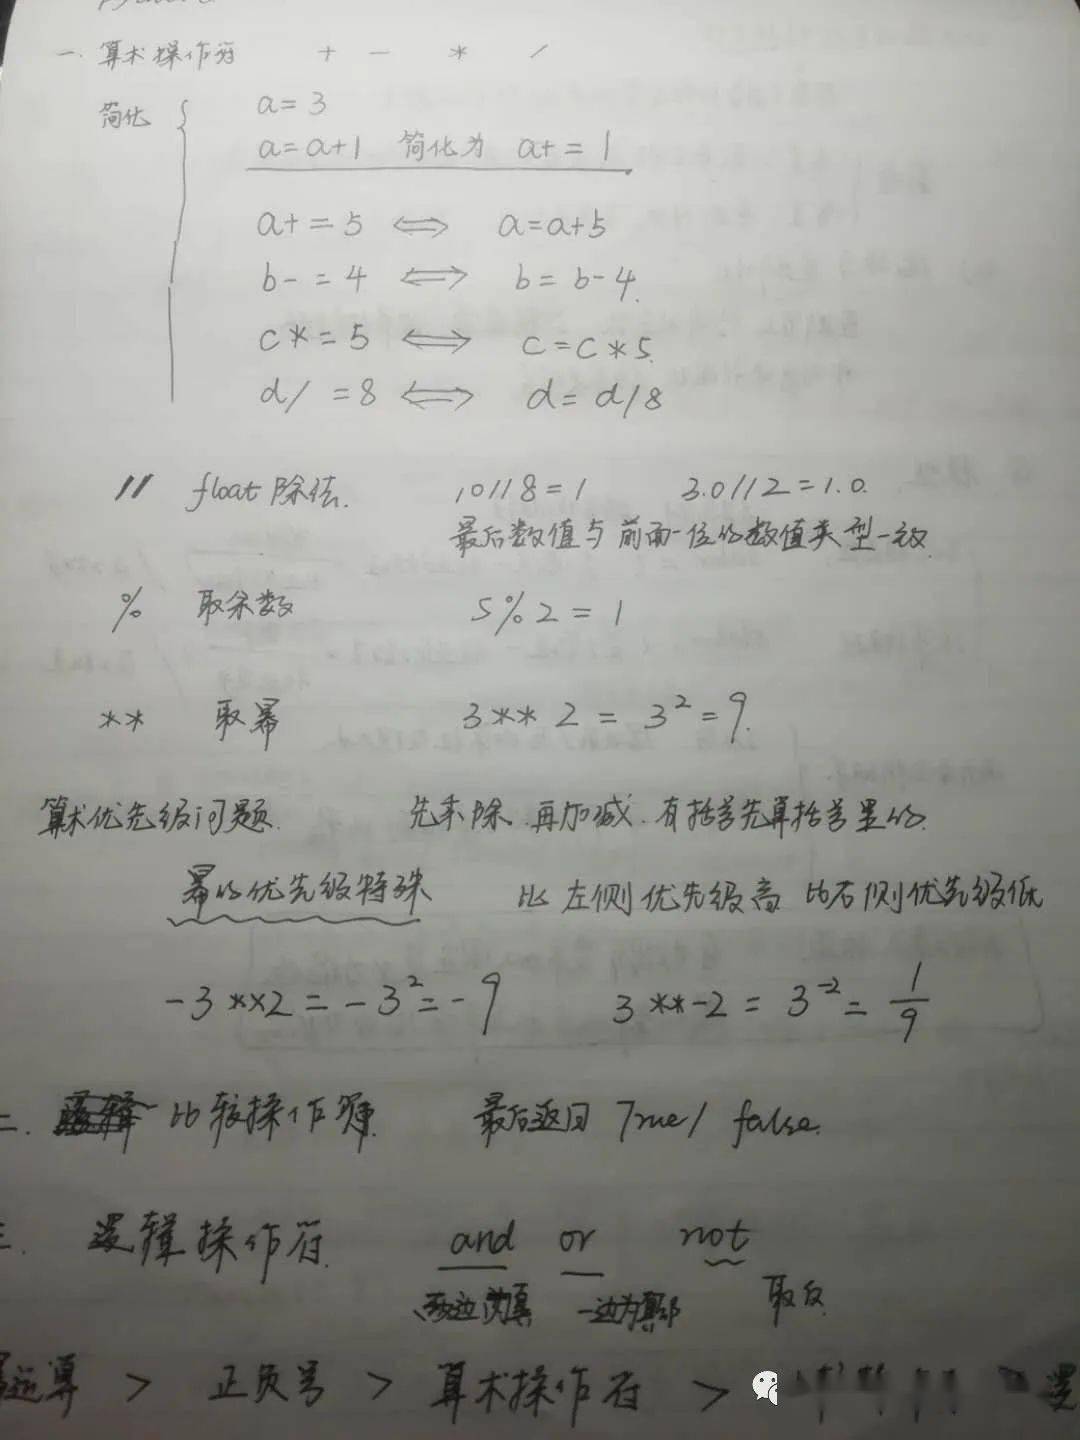 一. 算术操作符 + - * /
简化 a=3
a=a+1 简化为 a+=1
a+=5 ⟺ a=a+5
b-=4 ⟺ b=b-4.
c*=5 ⟺ c=c*5.
d/=8 ⟺ d=d/8
// float 除法. 10//8=1 3.0//2=1.0.
最后数值与前面一位的数值类型一致.
% 取余数 5%2=1
** 取幂 3**2=3²=9.
算术优先级问题. 先乘除.再加减.有括号先算括号里的.
幂的优先级特殊 比左侧优先级高 比右侧优先级低
-3**2=-3²=-9 3**-2=3⁻²=1/9
二. 比较操作 最后返回 True/ false.
三. 逻辑操作符. and or not
两边为真 一边为真即 取反.
幂运算 > 正负号 > 算术操作符 >